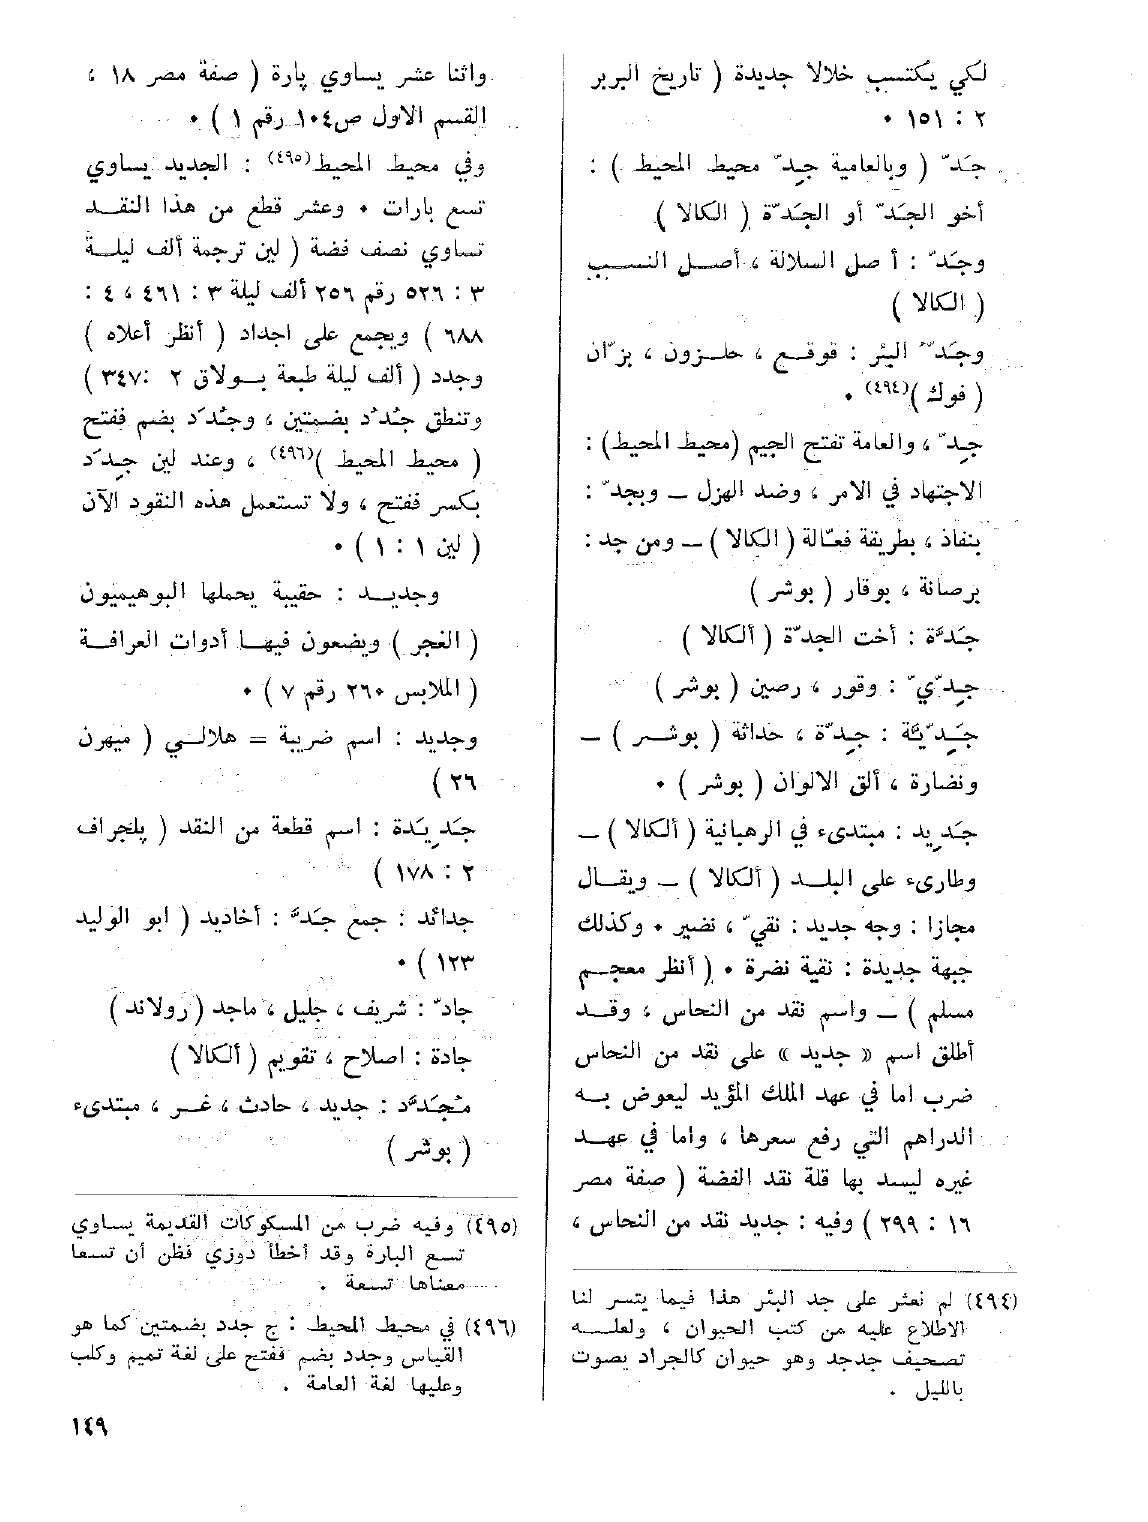 لكي يكتسب خلالا جديدة ( تاريخ البربر
٢ : ١٥١ ٠
جَدّ ( وبالعامية جِدّ محيط المحيط ) :
أخو الجَدّ أو الجَدّة ( الكالا )
وجَدّ : أصل السلالة ، أصل النسب
( الكالا )
وجَدّ البئر : قوقع ، حلزون ، بزّان
( فوك )(٤٩٤) ٠
جِدّ ، والعامة تفتح الجيم (محيط المحيط) :
الاجتهاد في الامر ، وضد الهزل ــ وبجدّ :
بنفاذ ، بطريقة فعّالة ( الكالا ) ــ ومن جد :
برصانة ، بوقار ( بوشر )
جَدَّة : أخت الجدّة ( ألكالا )
جِدّيّ : وقور ، رصين ( بوشر )
جِدّيّة : جِدّة ، حداثة ( بوشر ) ــ
ونضارة ، ألق الالوان ( بوشر ) ٠
جَدِيد : مبتدىء في الرهبانية ( ألكالا ) ــ
وطارىء على البلد ( ألكالا ) ــ ويقال
مجازا : وجه جديد : نقيّ ، نضير ٠ وكذلك
جبهة جديدة : نقية نضرة ٠ ( أنظر معجم
مسلم ) ــ واسم نقد من النحاس ، وقد
أطلق اسم « جديد » على نقد من النحاس
ضرب اما في عهد الملك المؤيد ليعوض به
الدراهم التي رفع سعرها ، واما في عهد
غيره ليسد بها قلة نقد الفضة ( صفة مصر
١٦ : ٢٩٩ ) وفيه : جديد نقد من النحاس ،
(٤٩٤) لم نعثر على جد البئر هذا فيما يتسر لنا
الاطلاع عليه من كتب الحيوان ، ولعله
تصحيف جدجد وهو حيوان كالجراد يصوت
بالليل .
واثنا عشر يساوي پارة ( صفة مصر ١٨ ،
القسم الاول ص١٠٤ رقم ١ ) ٠
وفي محيط المحيط(٤٩٥) : الجديد يساوي
تسع بارات ٠ وعشر قطع من هذا النقد
تساوي نصف فضة ( لين ترجمة ألف ليلة
٣ : ٥٢٦ رقم ٢٥٦ ألف ليلة ٣ : ٤٦١ ، ٤ :
٦٨٨ ) ويجمع على اجداد ( أنظر أعلاه )
وجدد ( ألف ليلة طبعة بولاق ٢ : ٣٤٧ )
وتنطق جُدُد بضمتين ، وجُدَد بضم ففتح
( محيط المحيط )(٤٩٦) ، وعند لين جِدَد
بكسر ففتح ، ولا تستعمل هذه النقود الآن
( لين ١ : ١ ) ٠
وجديد : حقيبة يحملها البوهيميون
( الغجر ) ويضعون فيها أدوات العرافة
( الملابس ٢٦٠ رقم ٧ ) ٠
وجديد : اسم ضريبة = هلالي ( ميهرن
٢٦ )
جَدِيَدة : اسم قطعة من النقد ( پلجراف
٢ : ١٧٨ )
جدائد : جمع جَدّ : أخاديد ( ابو الوليد
١٢٣ ) ٠
جادّ : شريف ، جليل ، ماجد ( رولاند )
جادة : اصلاح ، تقويم ( ألكالا )
مُتجَدِّد : جديد ، حادث ، غر ، مبتدىء
( بوشر )
(٤٩٥) وفيه ضرب من المسكوكات القديمة يساوي
تسع البارة وقد أخطأ دوزي فظن أن تسعا
معناها تسعة .
(٤٩٦) في محيط المحيط : ج جدد بضمتين كما هو
القياس وجدد بضم ففتح على لغة تميم وكلب
وعليها لغة العامة .
١٤٩